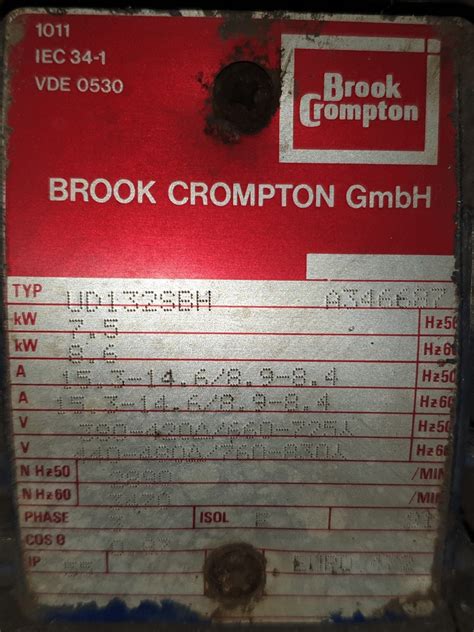 1011
IEC 34-1
VDE 0530
Brook
Crompton
BROOK CROMPTON GmbH
TYP UD132SBH A346687
kW 7.5 Hz50
kW 8.6 Hz60
A 15.3-14.6/8.9-8.4 Hz50
A 15.3-14.6/8.9-8.4 Hz60
V 380-420Δ/660-725⅄ Hz50
V 440-480Δ/760-830⅄ Hz60
N Hz50 /MIN
N Hz60 /MIN
PHASE ISOL F
COS θ
IP